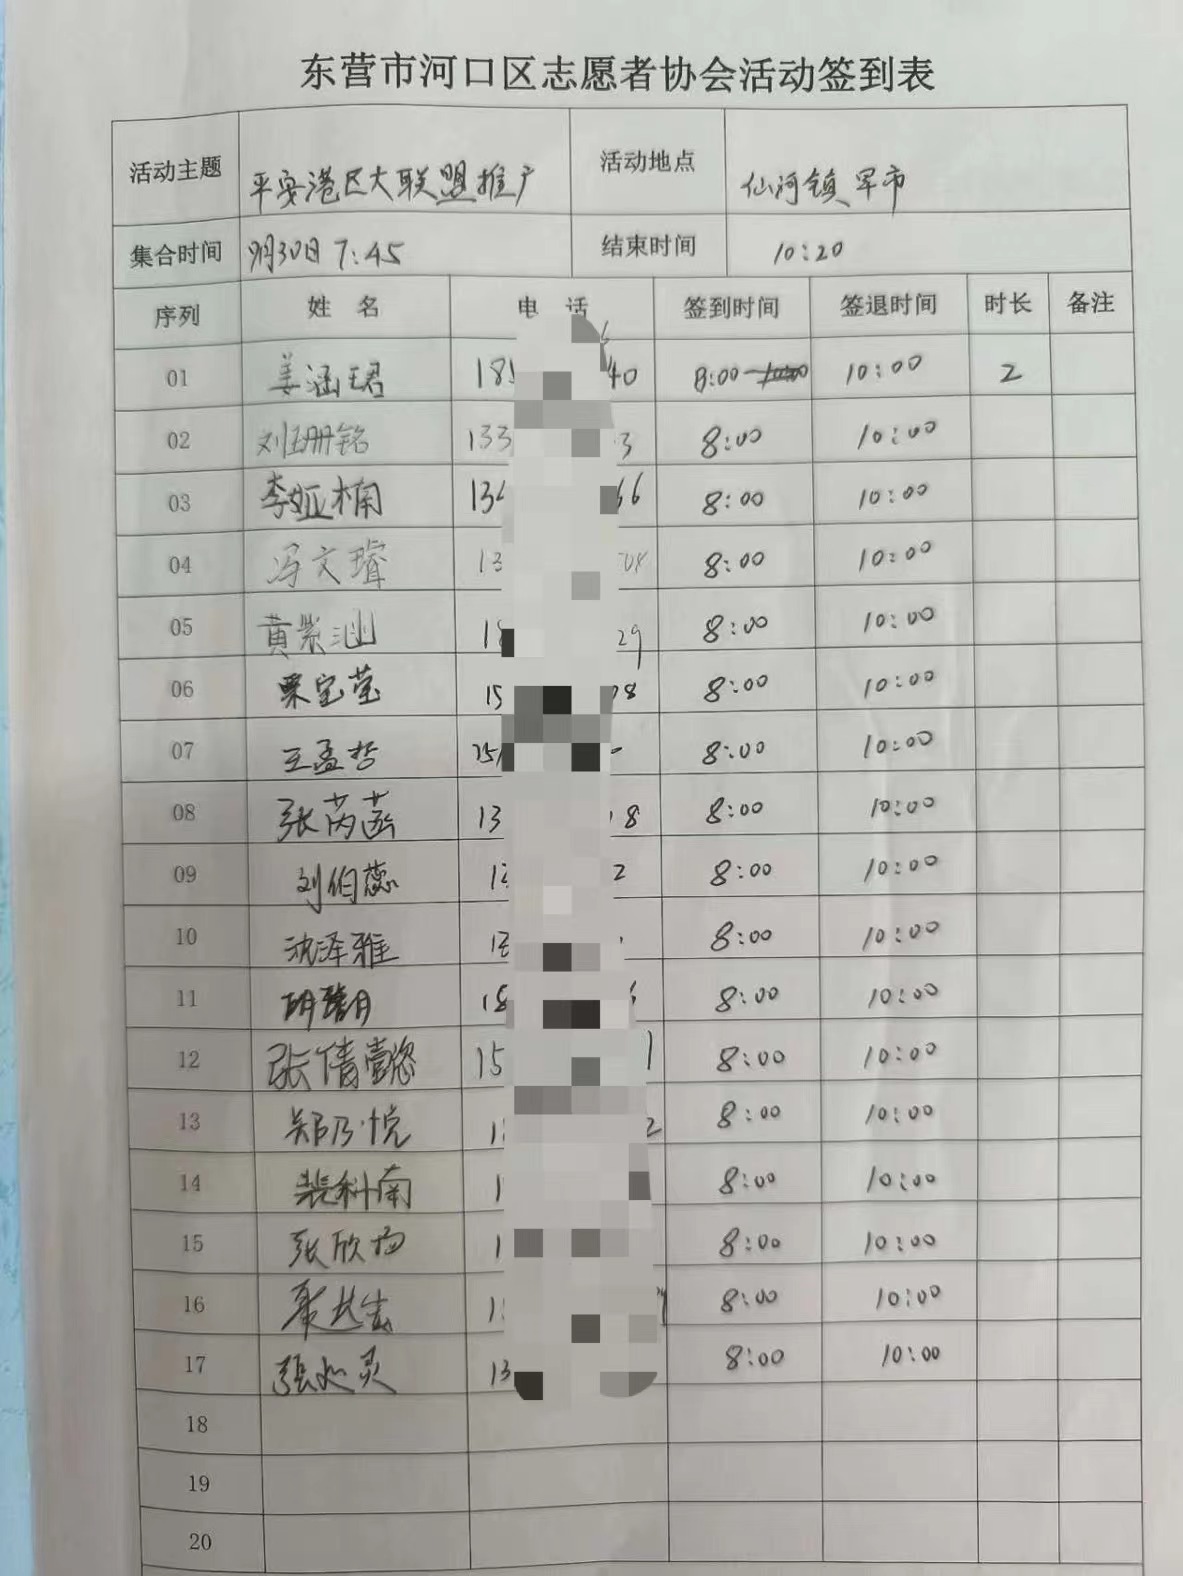 东营市河口区志愿者协会活动签到表
活动主题 平安港区大联盟推广 活动地点 仙河镇军市
集合时间 月30日 7:45 结束时间 10:20
序列 姓名 电话 签到时间 签退时间 时长 备注
01 姜涵珺 18 40 8:00 10:00 2
02 刘珊铭 133 3 8:00 10:00
03 李娅楠 13 66 8:00 10:00
04 冯文 13 8:00 10:00
05 黄紫涵 18 29 8:00 10:00
06 栗宝莹 15 8 8:00 10:00
07 王孟哲 15 8:00 10:00
08 张芮菡 13 18 8:00 10:00
09 刘伯蕊 1 2 8:00 10:00
10 沈泽雅 1 8:00 10:00
11 18 8:00 10:00
12 张倩懿 15 1 8:00 10:00
13 郑乃悦 1 2 8:00 10:00
14 裴科南 1 8:00 10:00
15 张欣扬 1 8:00 10:00
16 1 8:00 10:00
17 張 灵 13 8:00 10:00
18
19
20